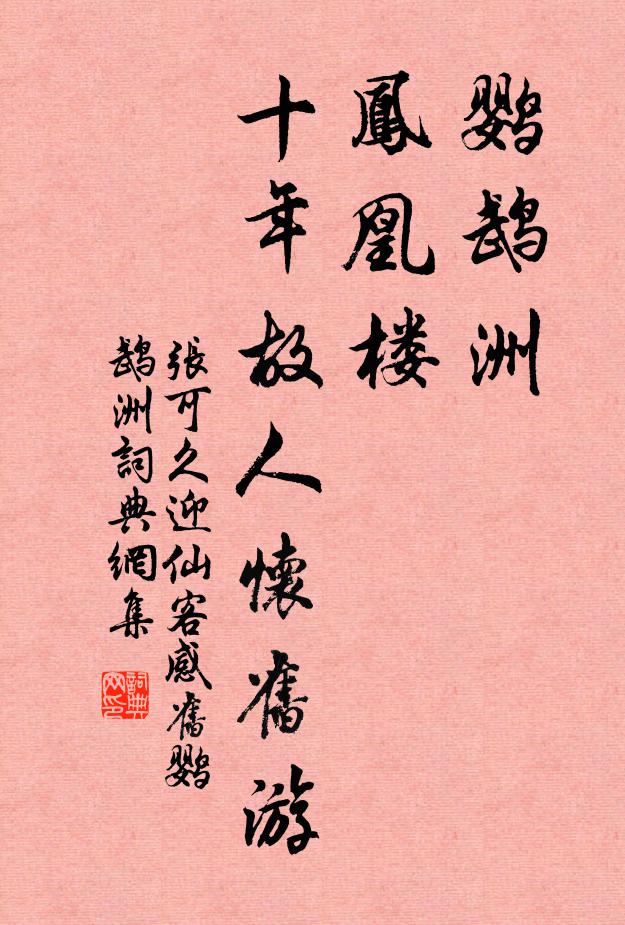 鹦鹉洲
鳳凰楼
十年故人懷舊游
張可久迎仙客感舊鹦
鹉洲詞典網集
詞典
网印